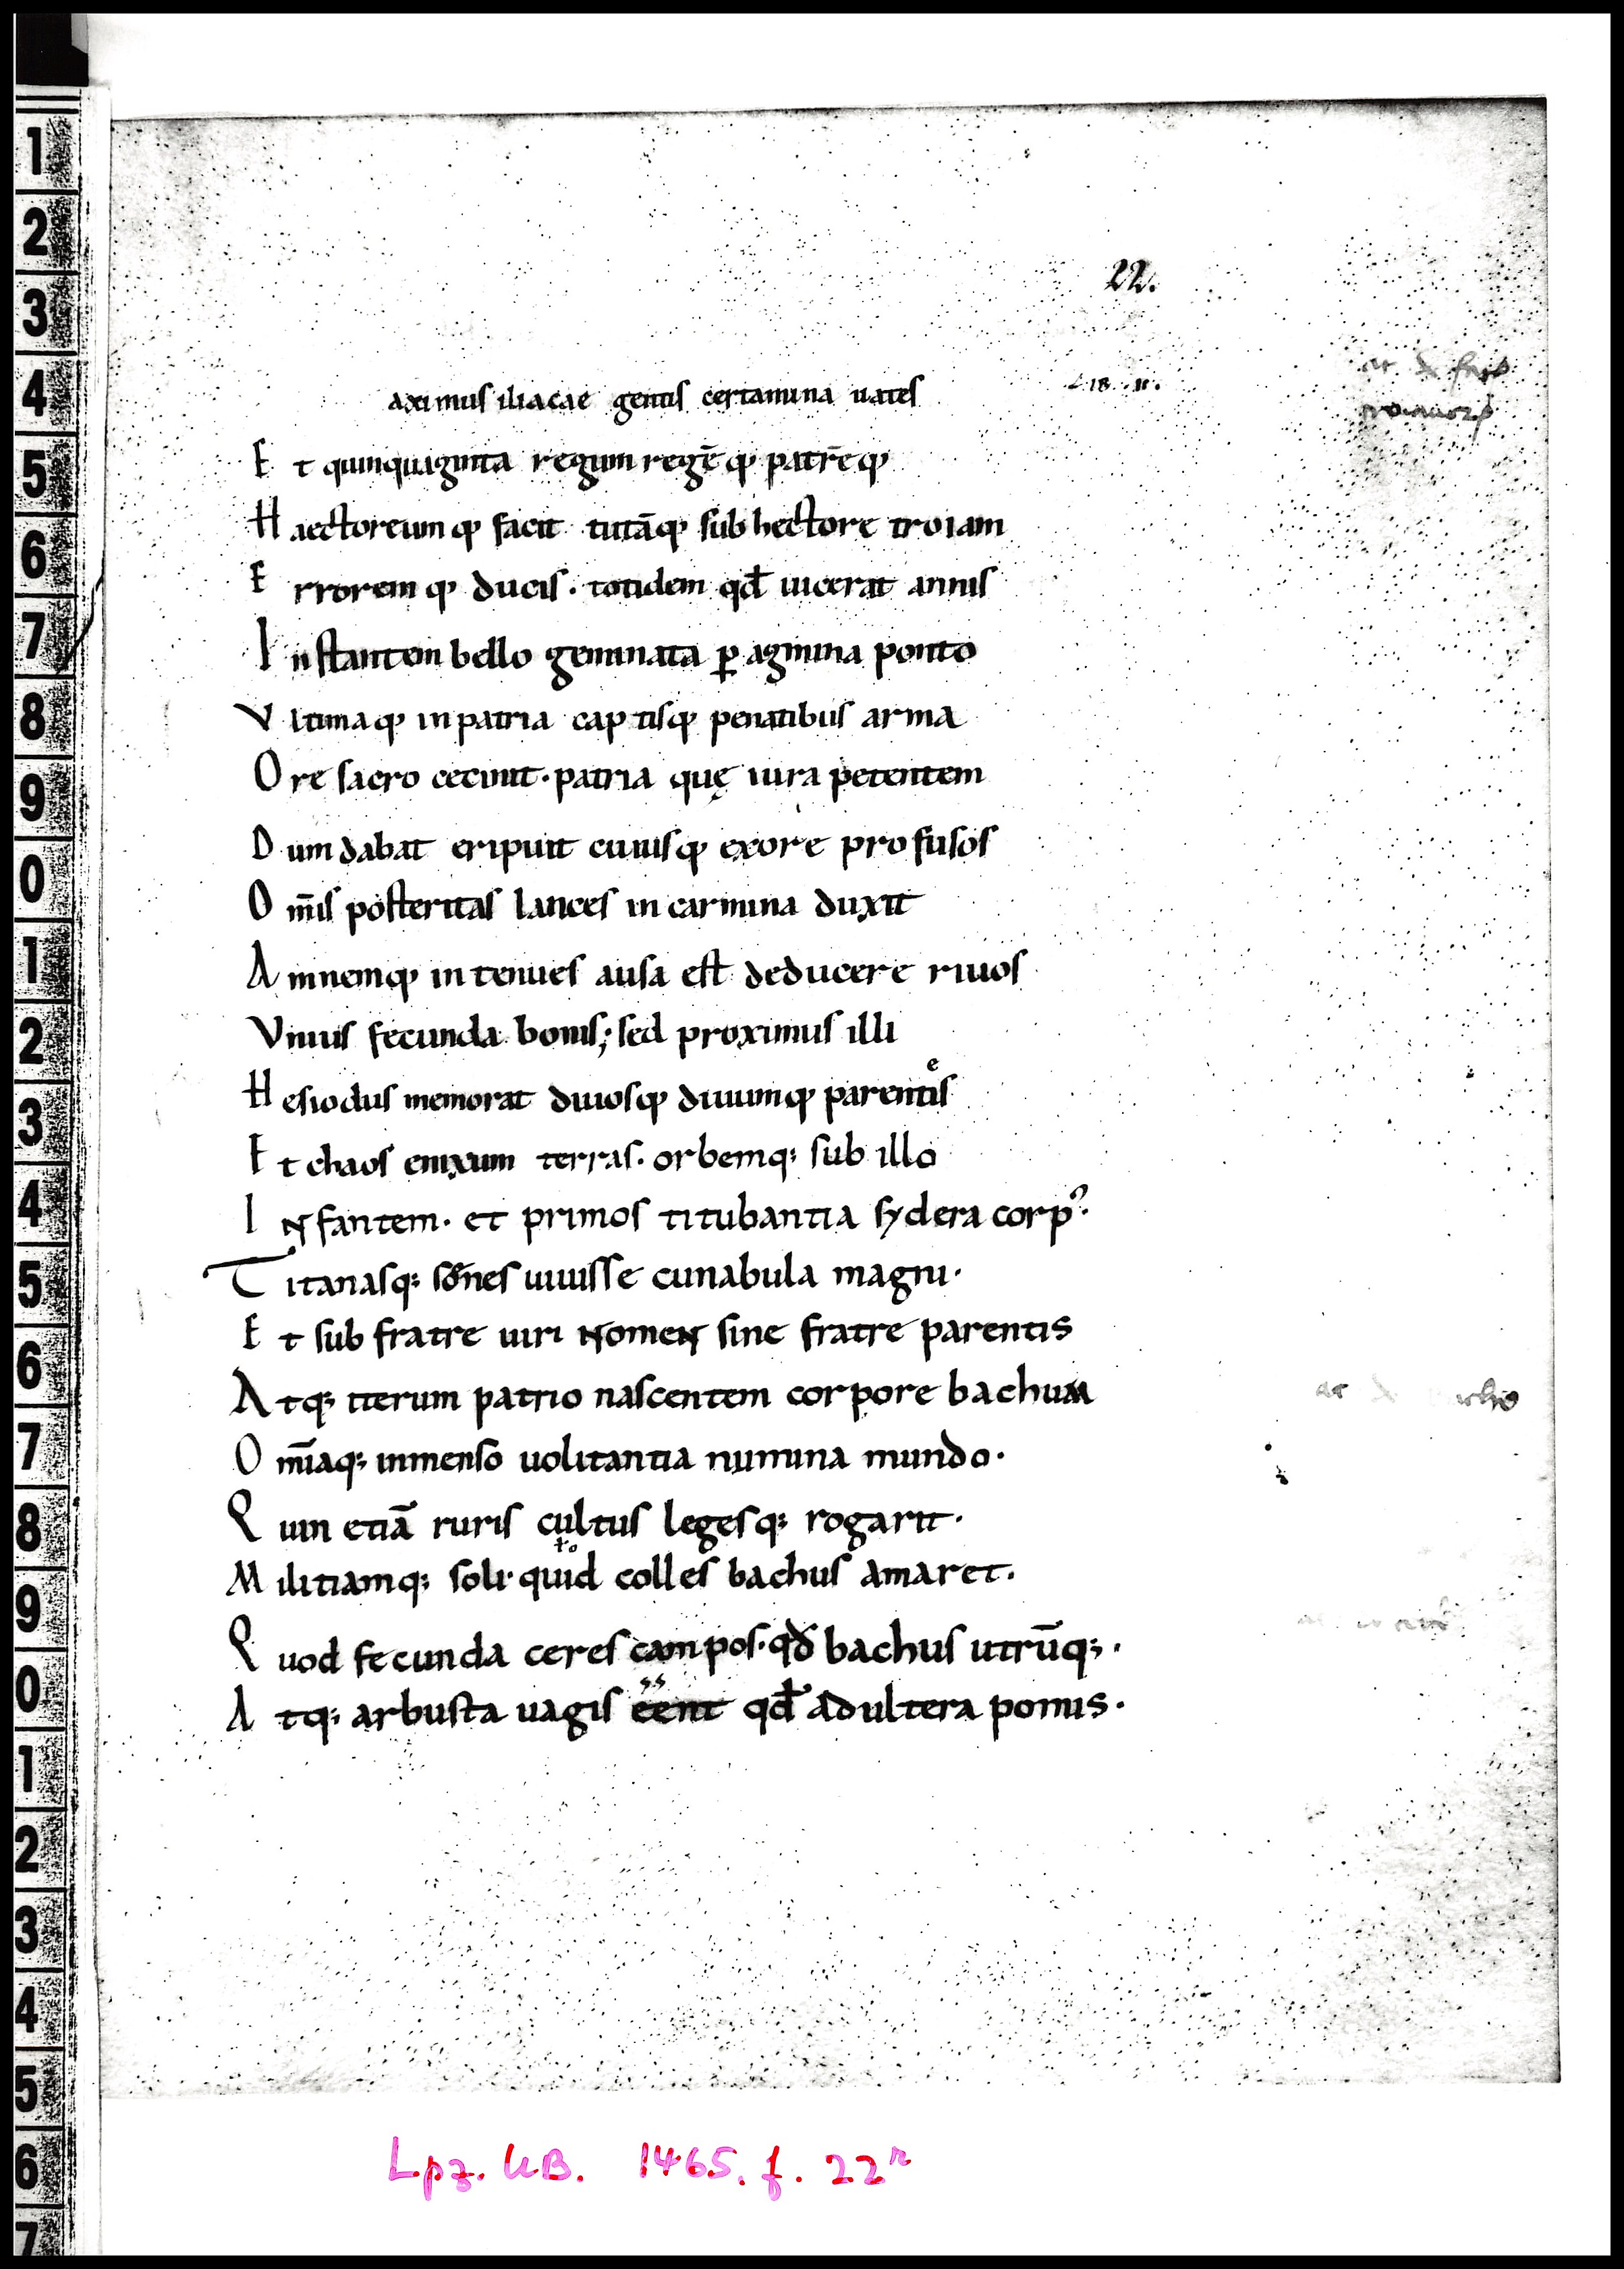 22.
LIB. II.
aximus iliacae gentis certamina uates
Et quinquaginta regum regēq; patrēq;
Haectoreumq; facit tutāq; sub hectore troiam
Erroremq; ducis. totidem qđ uicerat annis
Instantem bello geminata ꝑ agmina ponto
Vltimaq; in patria captisq; penatibus arma
Ore sacro cecinit. patria quę iura petentem
Dum dabat eripuit cuiusq; ex ore profusos
Om̄is posteritas lances in carmina duxit
Amnemq; in tenues ausa est deducere riuos
Vnius fecunda bonis; sed proximus illi
e
Hesiodus memorat diuosq; diuumq; parentis
Et chaos enixum terras. orbemq; sub illo
Infantem. et primos titubantia sydera corpꝰ.
Titanasq; sōnes uiuisse cunabula magni.
Et sub fratre uiri nomen sine fratre parentis
Atq; iterum patrio nascentem corpore bachum
Om̄iaq; inmenso uolitantia numina mundo.
Quin etiā ruris cultus legesq; rogarit.
ł o
Militiamq; soli. quid colles bachus amaret.
Quod fecunda ceres campos. qđ bachus utrūq;.
ss
Atq; arbusta uagis eent qđ adultera pomis.
Lpz. UB. 1465. f. 22r
1
2
3
4
5
6
7
8
9
0
1
2
3
4
5
6
7
8
9
0
1
2
3
4
5
6
7